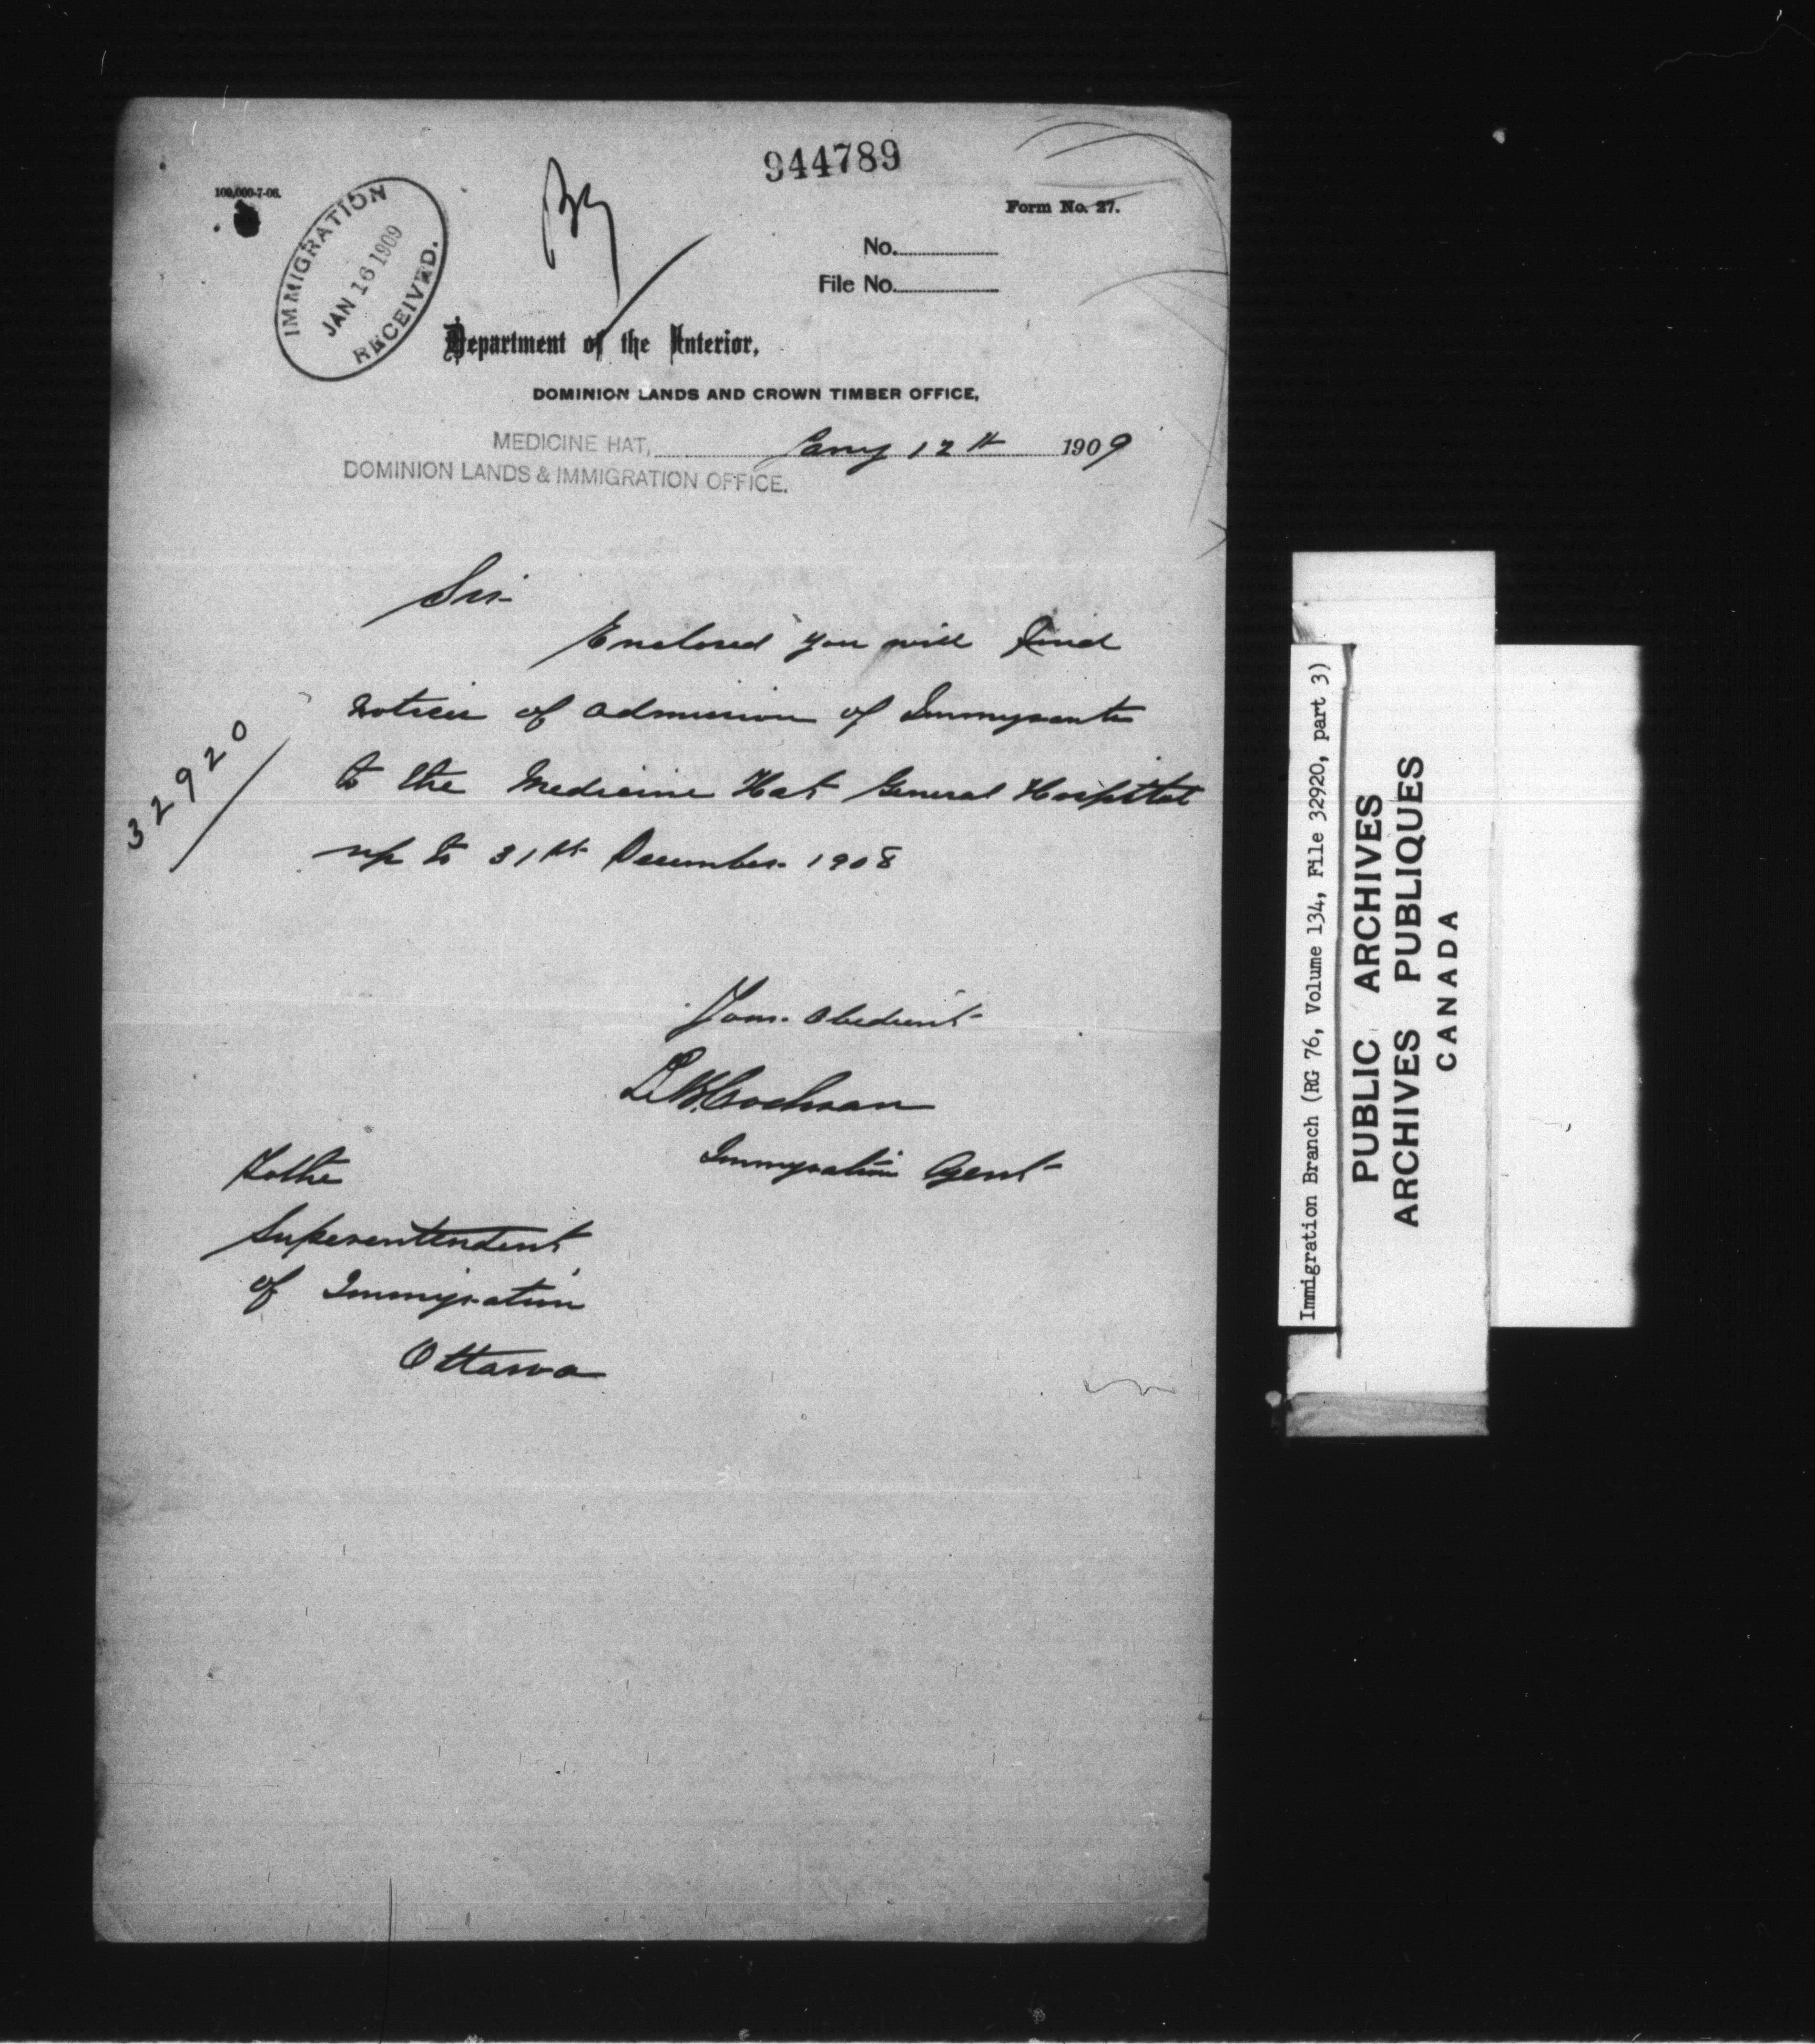 944789
100,000-7-06.
Form No. 27.
IMMIGRATION
JAN 16 1909
RECEIVED.
No.
File No.
Department of the Interior,
DOMINION LANDS AND CROWN TIMBER OFFICE,
MEDICINE HAT, Jany 12th 1909
DOMINION LANDS & IMMIGRATION OFFICE.
Sir
Enclosed you will find
notices of admission of Immigrants
to the Medicine Hat General Hospital
up to 31st December 1908
32920
Your Obedient
Cochran
Immigration Agent
To the
Superentendent
of Immigration
Ottawa
Immigration Branch (RG 76, Volume 134, File 32920, part 3)
PUBLIC ARCHIVES
ARCHIVES PUBLIQUES
CANADA